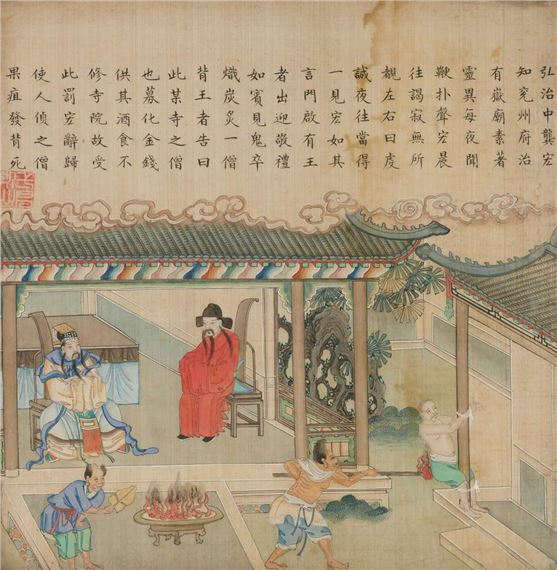 弘治中龔宏
知兗州府治
有嶽廟素著
靈異每夜聞
鞭扑聲宏晨
往謁寂無所
覩左右曰虔
誠夜往當得
一見宏如其
言門啟有王
者出迎敬禮
如賓見鬼卒
熾炭炙一僧
背王者告曰
此某寺之僧
也募化金錢
供其酒食不
修寺院故受
此罰宏辭歸
使人偵之僧
果疽發背死